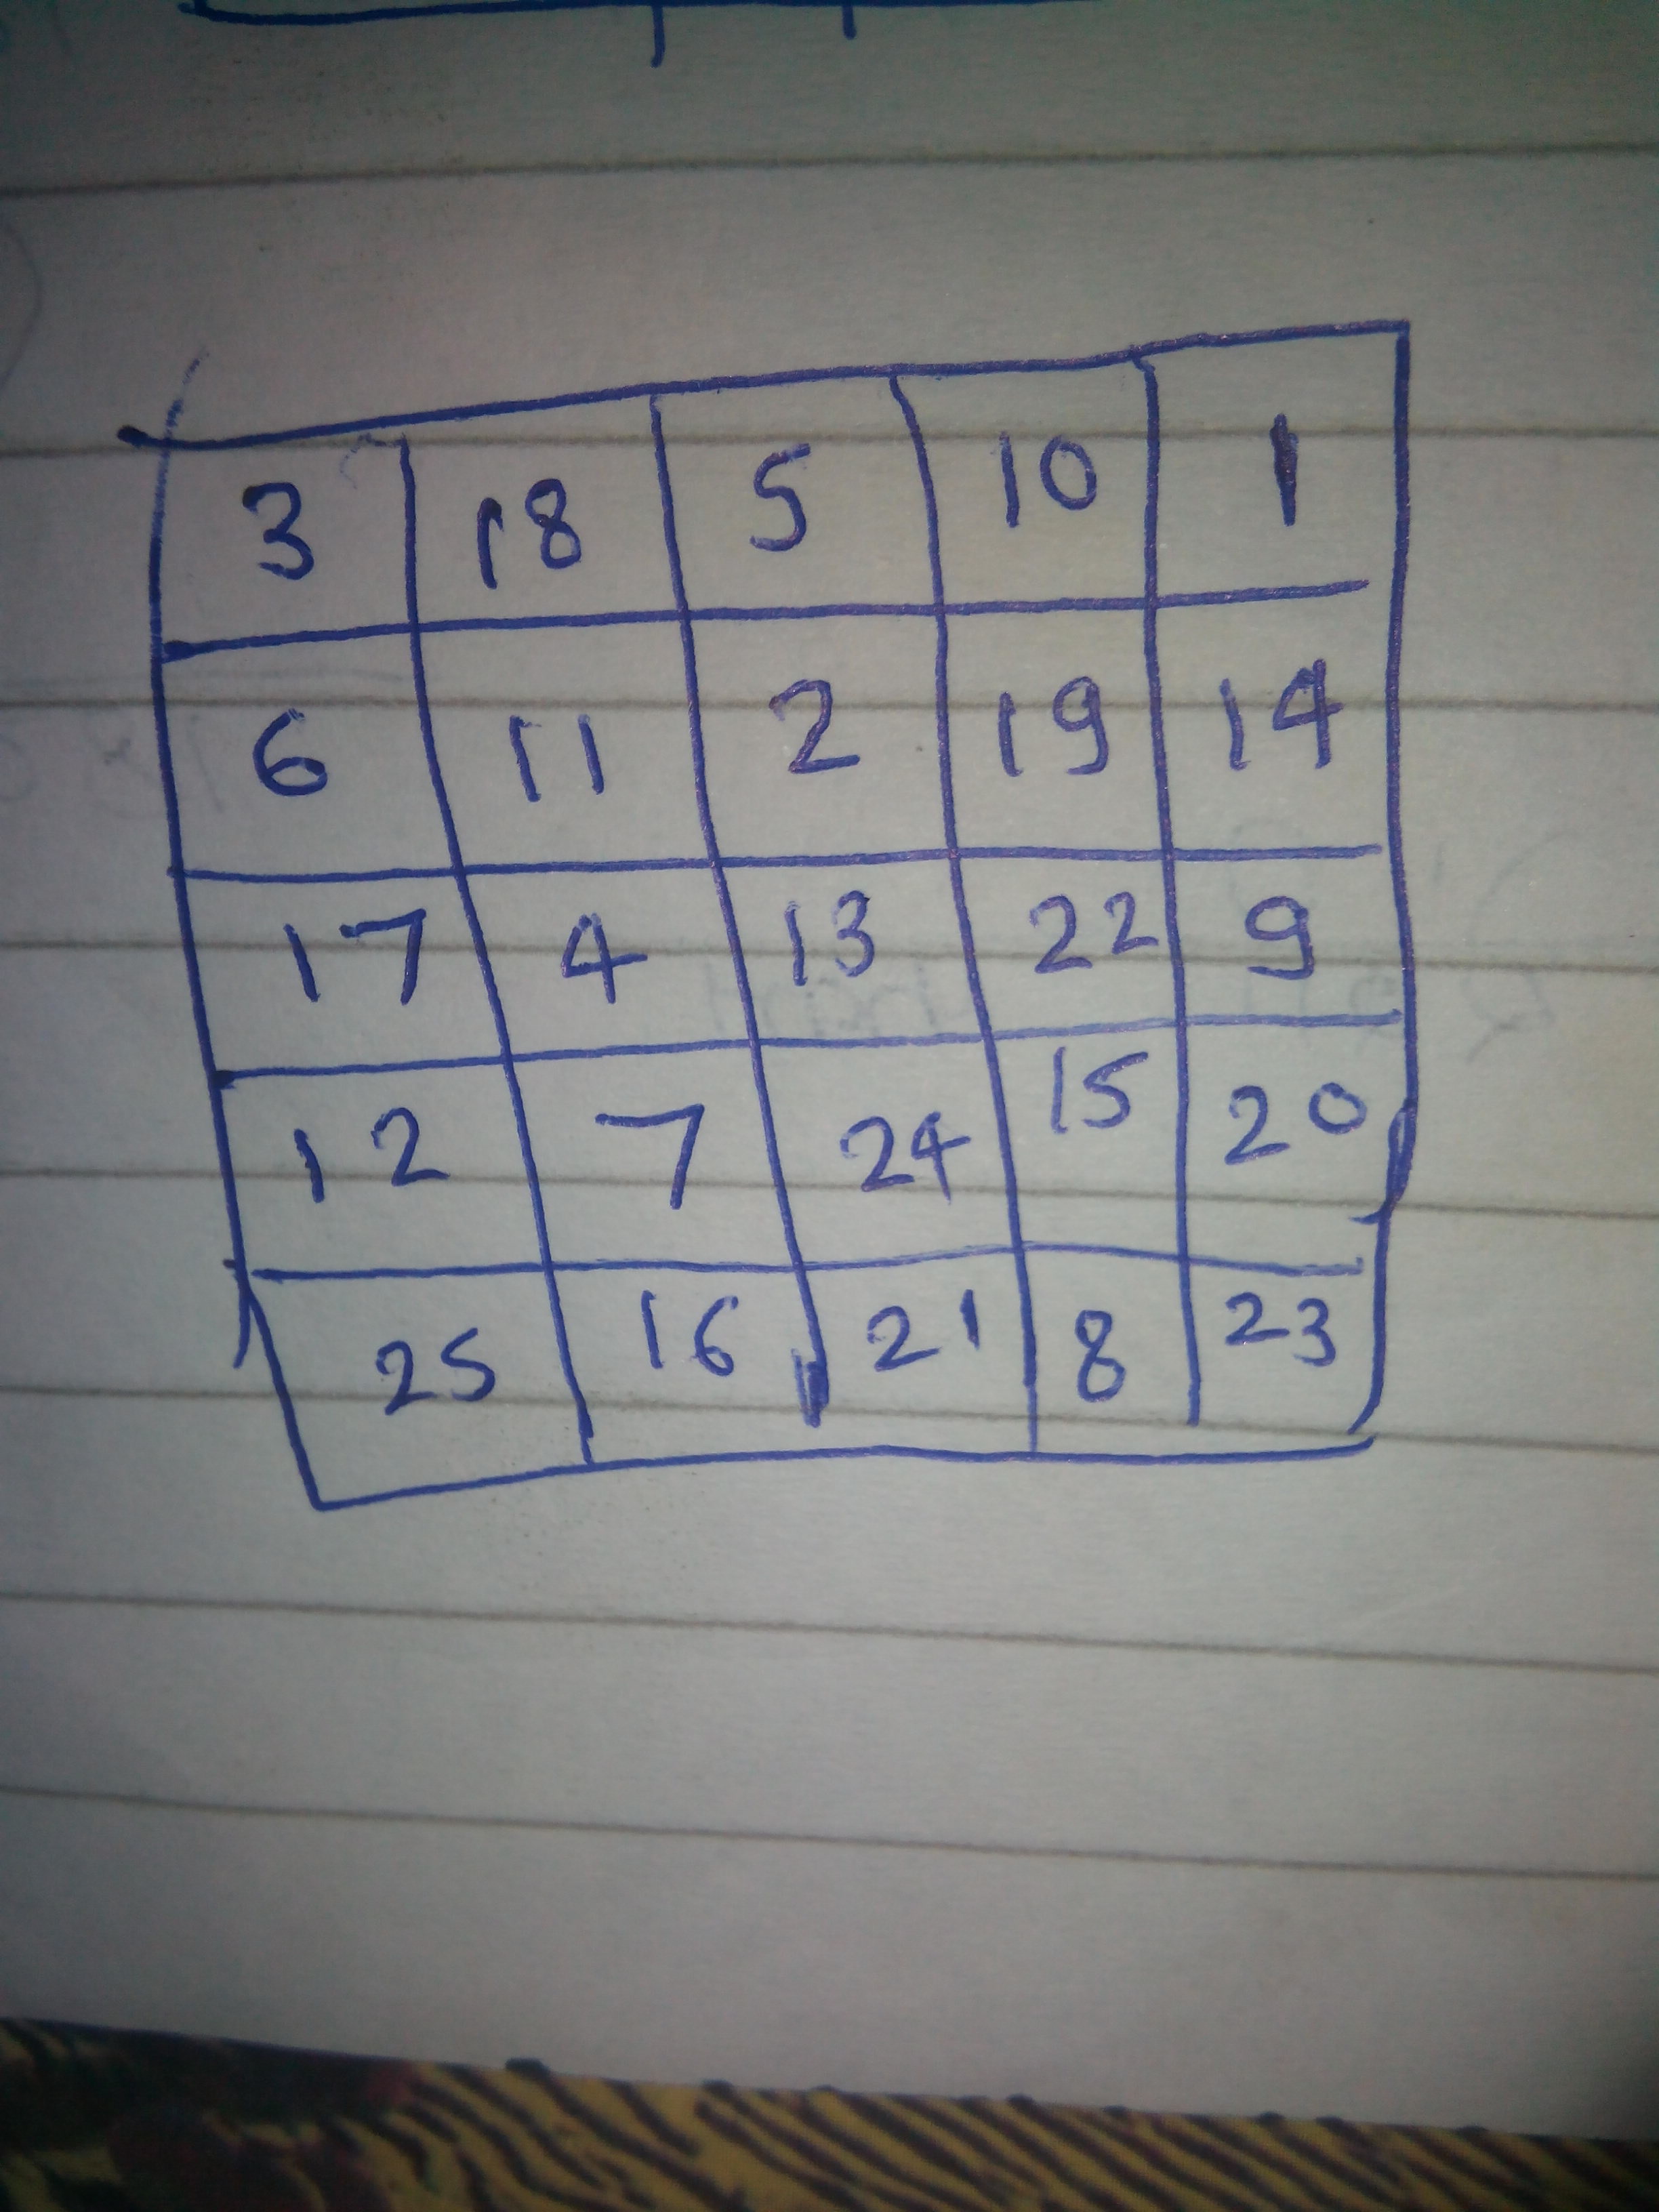 3 18 5 10 1
6 11 2 19 14
17 4 13 22 9
12 7 24 15 20
25 16 21 8 23